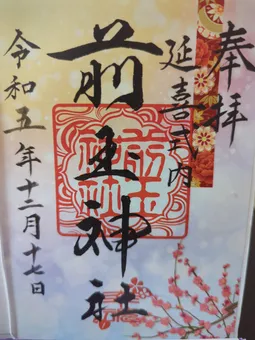 奉拝
延喜式内
前玉神社
令和五年十二月十七日
前玉神社